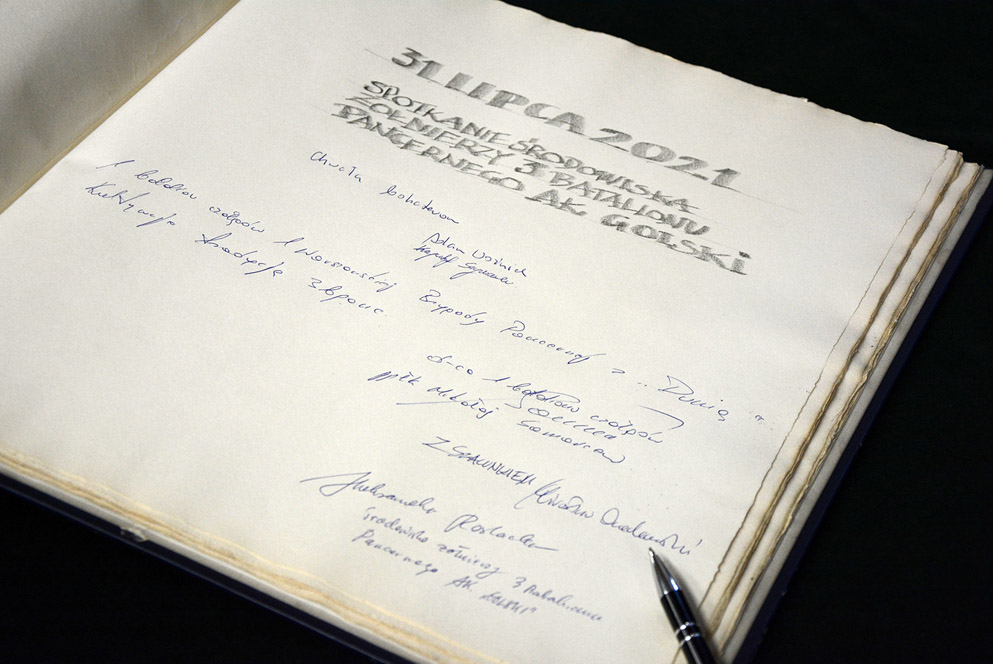 31 LIPCA 2021
SPOTKANIE ŚRODOWISKA
ŻOŁNIERZY 3 BATALIONU
PANCERNEGO AK GOLSKI
Chwała bohaterom
Adam Woźniak
1 batalion czołgów 1 Warszawskiej Brygady Pancernej z "Dumą"
Kultywuje tradycje 3 bpanc
d-ca 1 batalionu czołgów
ppłk Mikołaj
Z SZACUNKIEM
Aleksander
Środowisko żołnierzy 3 Batalionu
Pancernego AK "GOLSKI"